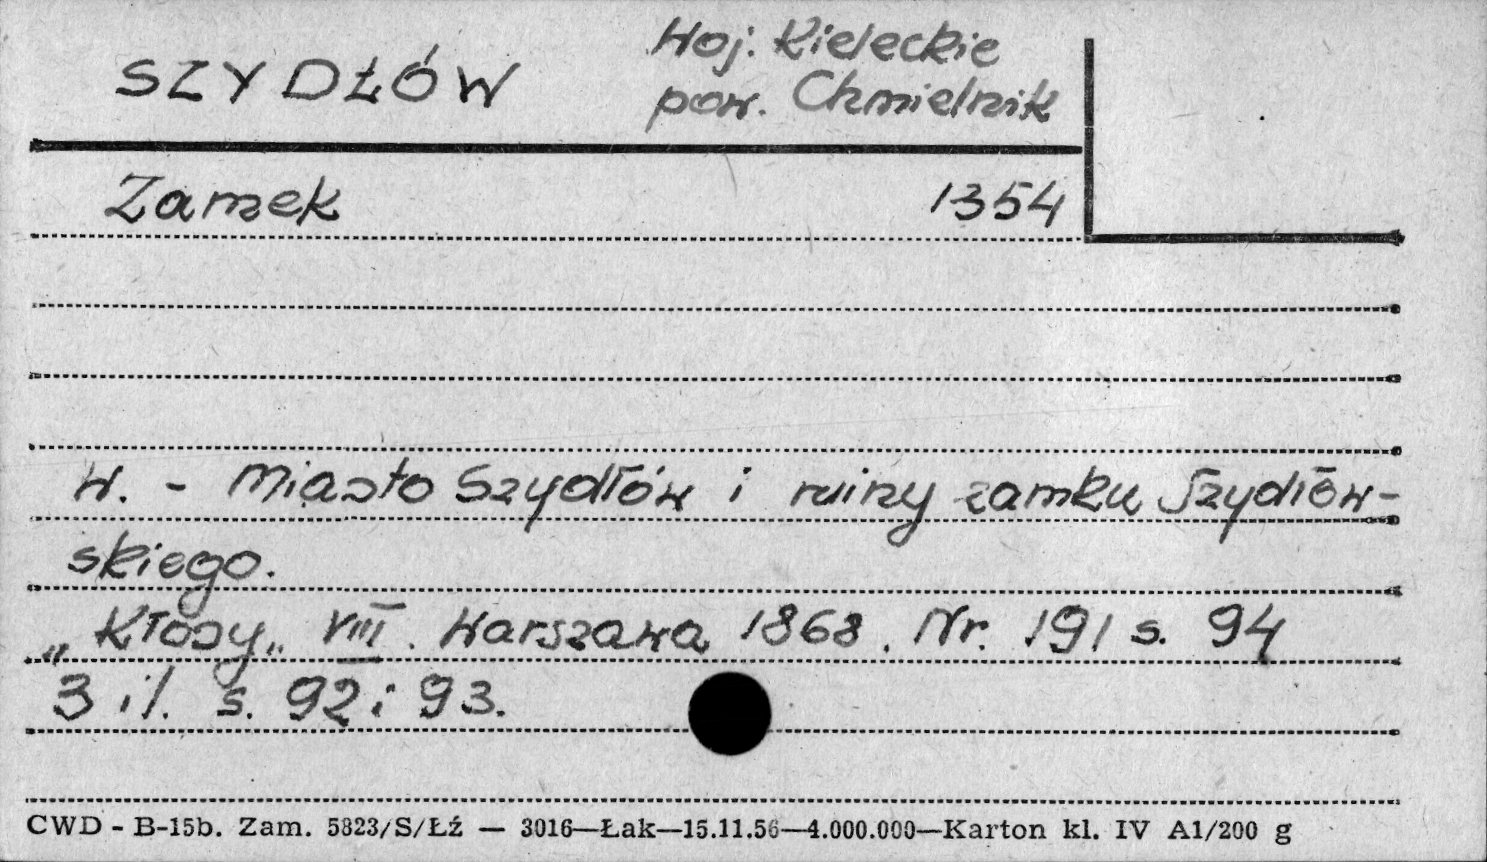 SZYDŁÓW
Woj. Kieleckie
pow. Chmielnik
Zamek 1354
W. - Miasto Szydłów i ruiny zamku Szydłow-
skiego.
„Kłosy„ VIII. Warszawa 1868. Nr. 191 s. 94
3 il. s. 92 i 93.
CWD - B-15b. Zam. 5823/S/Łź — 3016—Łak—15.11.56—4.000.000—Karton kl. IV A1/200 g